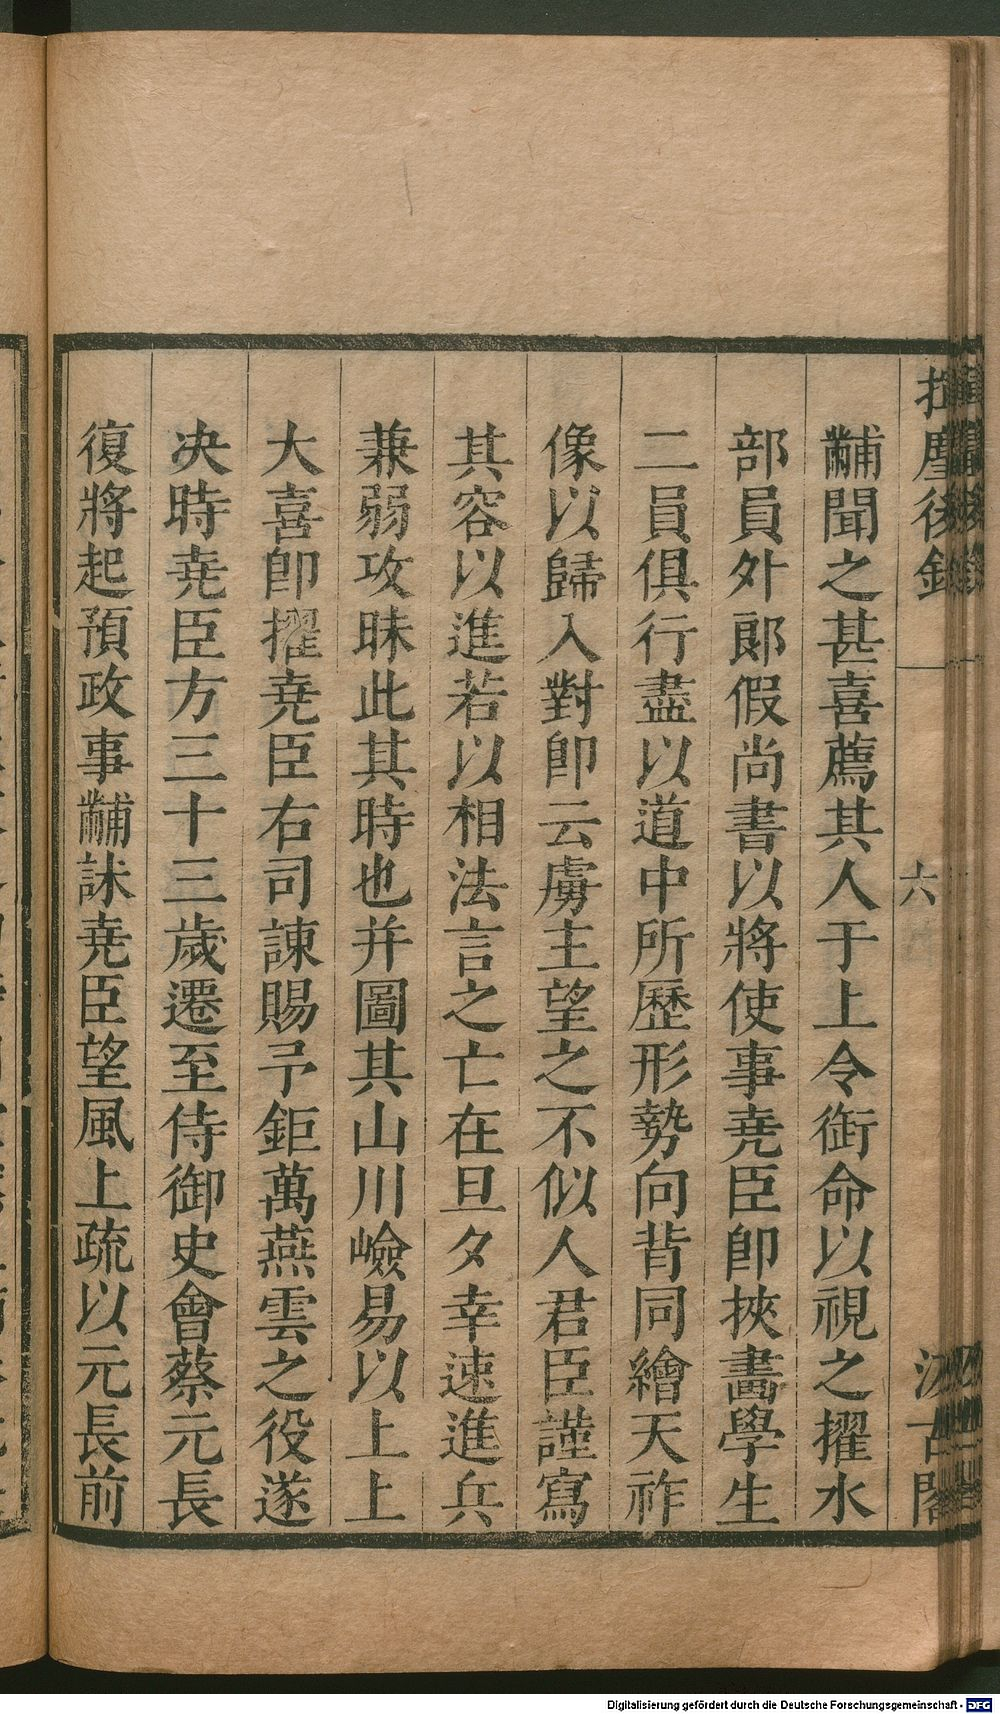 揮麈後錄 六 汲古閣
黼聞之甚喜薦其人于上令衘命以視之擢水
部員外郎假尚書以將使事堯臣卽挾畵學生
二員俱行盡以道中所歷形勢向背同繪天祚
像以歸入對卽云虜主望之不似人君臣謹寫
其容以進若以相法言之亡在旦夕幸速進兵
兼弱攻昧此其時也并圖其山川嶮易以上上
大喜卽擢堯臣右司諫賜予鉅萬燕雲之役遂
决時堯臣方三十三歲遷至侍御史會蔡元長
復將起預政事黼訹堯臣望風上疏以元長前
Digitalisierung gefördert durch die Deutsche Forschungsgemeinschaft - DFG